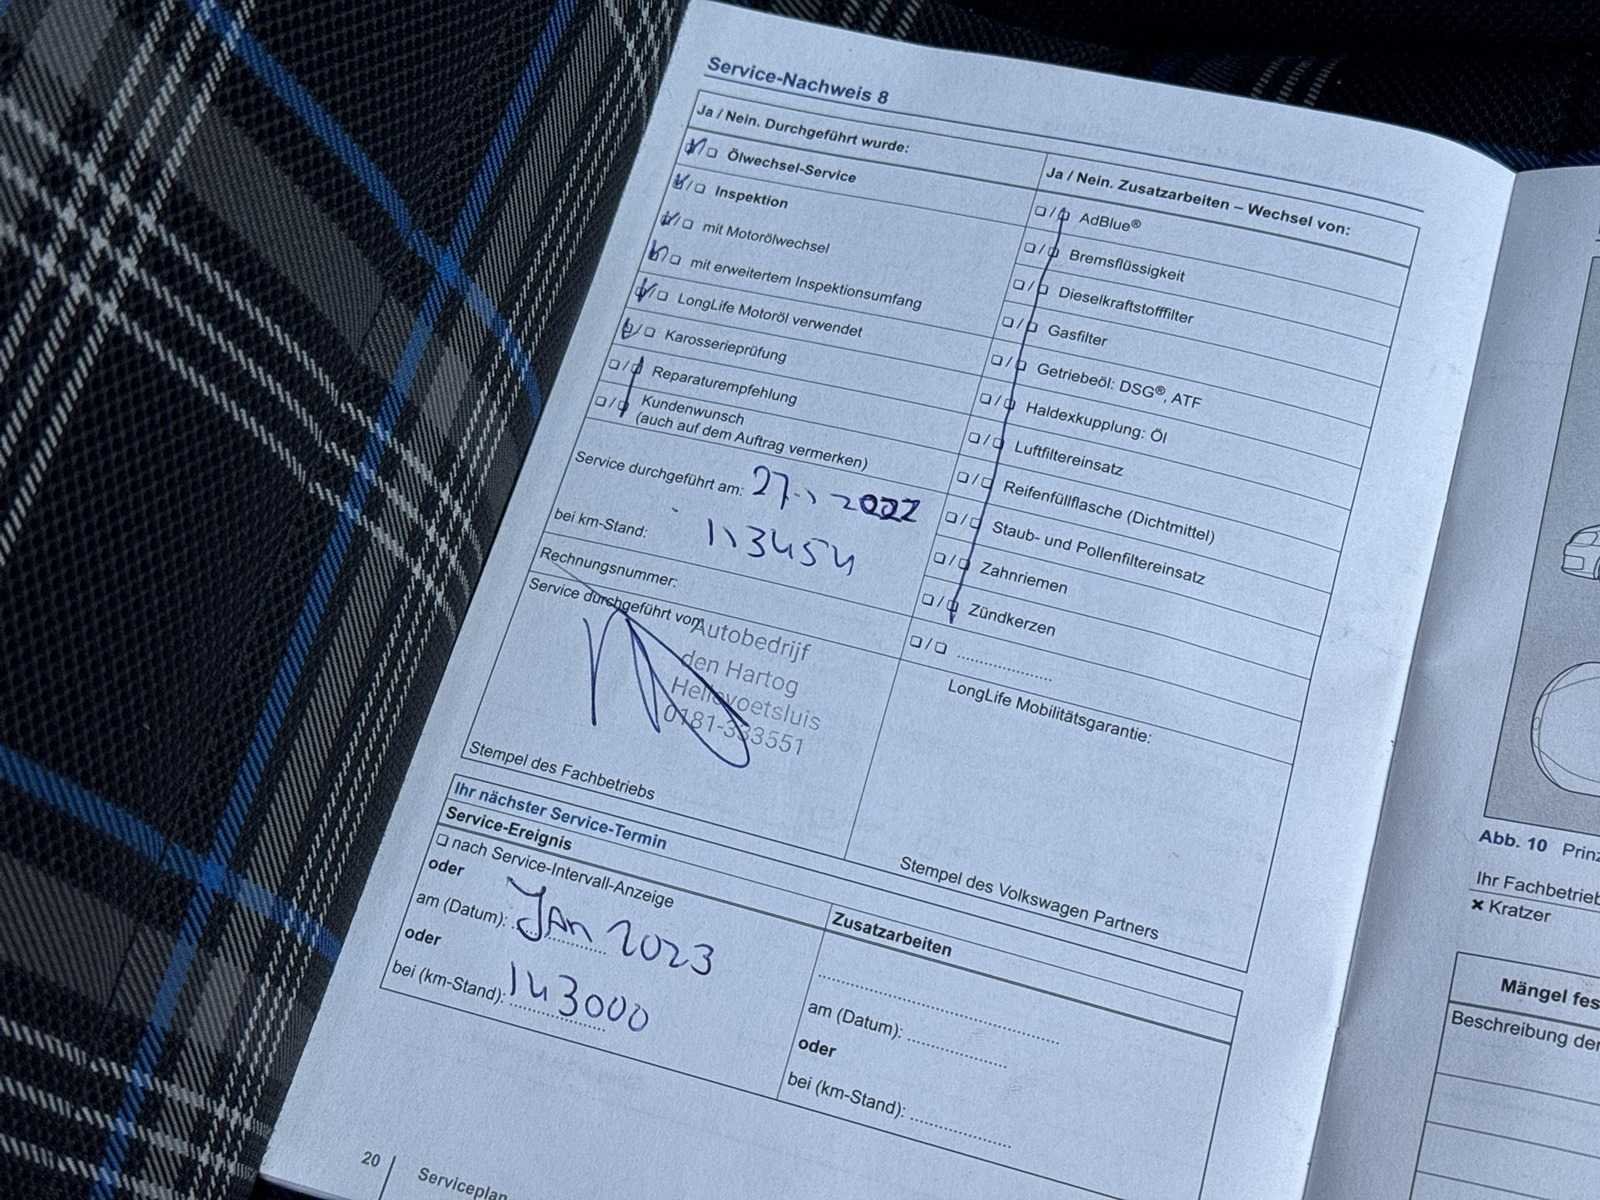 Service-Nachweis 8
Ja / Nein. Durchgeführt wurde:
Ölwechsel-Service
Inspektion
mit Motorölwechsel
mit erweitertem Inspektionsumfang
LongLife Motoröl verwendet
Karosserieprüfung
Reparaturempfehlung
Kundenwunsch
(auch auf dem Auftrag vermerken)
Service durchgeführt am: 27-1-2022
bei km-Stand: 113454
Rechnungsnummer:
Service durchgeführt vom
Autobedrijf
den Hartog
Hellevoetsluis
0181-333551
Stempel des Fachbetriebs
Ja / Nein. Zusatzarbeiten – Wechsel von:
AdBlue®
Bremsflüssigkeit
Dieselkraftstofffilter
Gasfilter
Getriebeöl: DSG®, ATF
Haldexkupplung: Öl
Luftfiltereinsatz
Reifenfüllflasche (Dichtmittel)
Staub- und Pollenfiltereinsatz
Zahnriemen
Zündkerzen
LongLife Mobilitätsgarantie:
Stempel des Volkswagen Partners
Ihr nächster Service-Termin
Service-Ereignis
nach Service-Intervall-Anzeige
oder
am (Datum): Jan 2023
oder
bei (km-Stand): 143000
Zusatzarbeiten
am (Datum):
oder
bei (km-Stand):
20
Serviceplan
Abb. 10 Prinz
Ihr Fachbetrieb
× Kratzer
Mängel fes
Beschreibung der